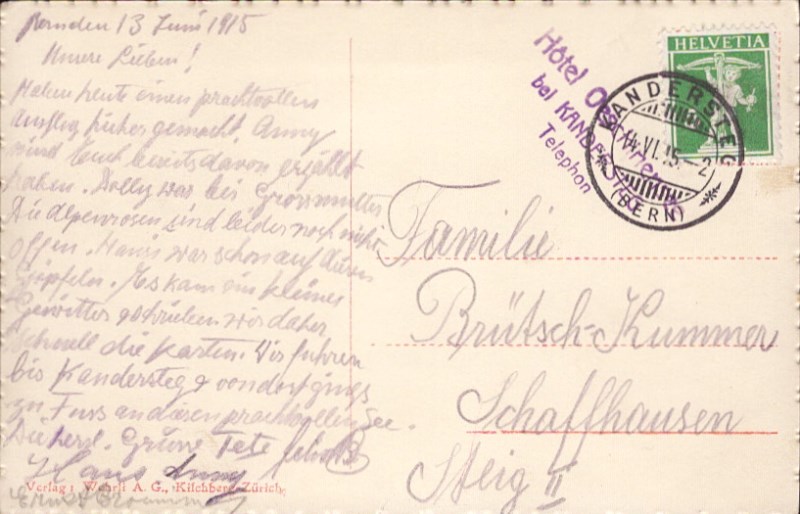 13 Juni 1915
Unsere Lieben!
Haben heute einen prachtvollen
Ausflug hieher gemacht. Anny
wird Euch bereits davon erzählt
haben. Dolly war bei Grossmutter
Die Alpenrosen sind leider noch nicht
offen. Hans war schon auf diesen
Gipfeln. Es kam ein kleines
Gewitter & schrieben wir daher
schnell die Karten. Wir fuhren
bis Kandersteg & von dort gings
zu Fuss an diesen prachtvollen See.
Die herzl. Grüsse Tete
Hans Anny
Ernst
Verlag: Wehrli A. G., Kilchberg-Zürich
HELVETIA
Hôtel
bei KANDERSTEG
Telephon
KANDERSTEG
14.VI.15.-2
(BERN)
Familie
Brütsch-Kummer
Schaffhausen
Steig II